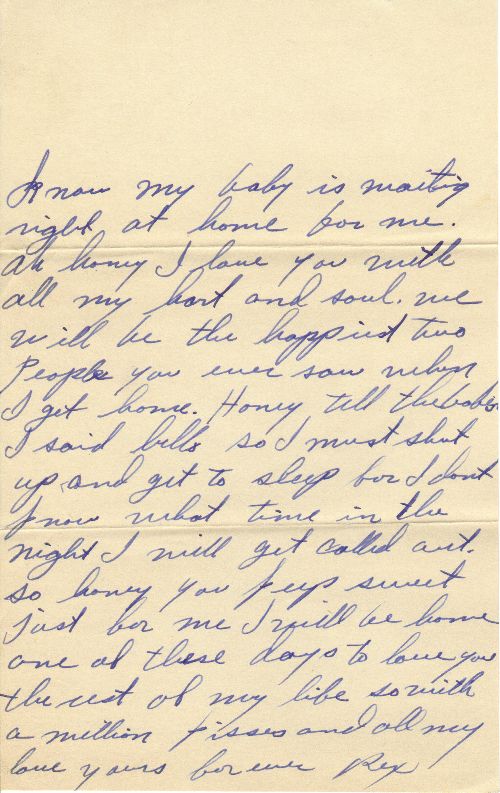 know my baby is waiting
right at home for me.
ah honey I love you with
all my hart and soul. we
will be the happiest two
People you ever saw when
I get home. Honey tell the babes
I said hello so I must shut
up and get to sleep for I dont
know what time in the
night I will get called out.
so honey you keep sweet
Just for me I will be home
one of these days to love you
the rest of my life so with
a million kisses and all my
love yours for ever Rex